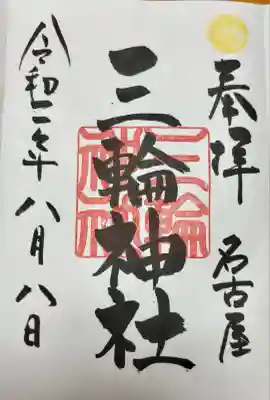 奉拝 名古屋
三輪神社
令和二年 八月八日
三輪神社